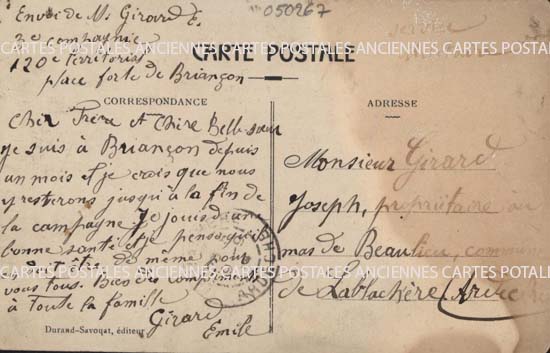 Envoi de Mr Girard E.
2e compagnie
120e territorial
place forte de Briançon
050267
CARTE POSTALE
CARTES POSTALES ANCIENNES CARTES POSTALES ANCIENNES CARTES POSTALES
CORRESPONDANCE
Cher Frère et Chère Belle-sœur
je suis à Briançon depuis
un mois et je crois que nous
y resterons jusqu'à la fin de
la campagne je jouis d'une
bonne santé et je pense qu'il
de même pour
vous tous. Bien des compliments
à toute la famille
Girard
Emile
Durand-Savoyat, éditeur
ADRESSE
Monsieur Girard
Joseph, propriétaire au
mas de Beaulieu, commune
de Lablachère (Ardèche
CARTES POSTALES ANCIENNES CARTES POSTALES ANCIENNES CARTES POSTALES